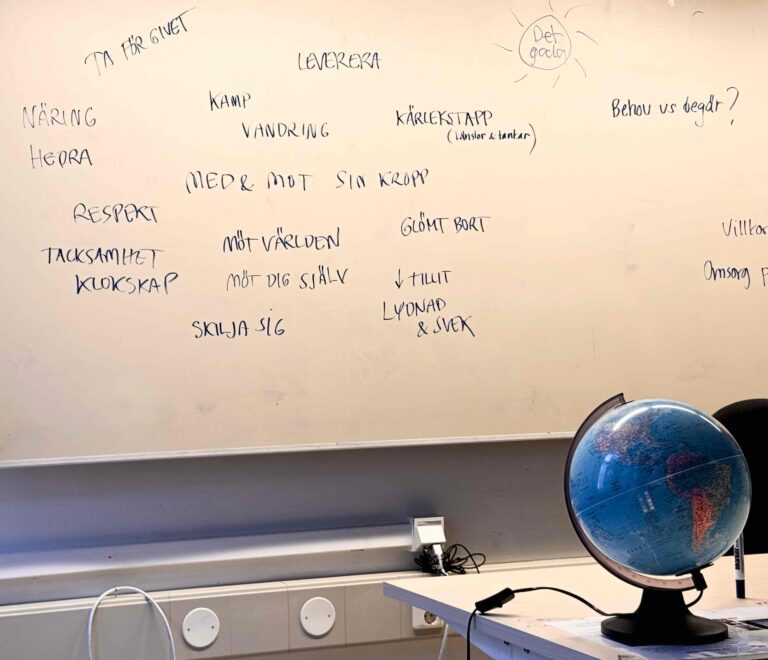 TA FÖR GIVET
LEVERERA
Det
goda
NÄRING
KAMP
VANDRING
KÄRLEKSTAPP
(känslor & tankar)
Behov vs begär?
HEDRA
MED & MOT SIN KROPP
RESPEKT
GLÖMT BORT
TACKSAMHET
KLOKSKAP
MÖT VÄRLDEN
MÖT DIG SJÄLV
↓ TILLIT
LYDNAD
& SVEK
SKILJA SIG
Villkor
Omsorg